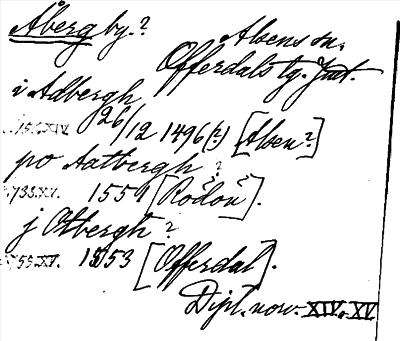 Åberg by.?
Abens sn.
Offerdals tg. Jmt.
i Adbergh
26/12 1496(?) [Aben?]
po Aatbergh?
733.XV. 1551 [Rödön].
j Otbergh?
755.XV. 1553 [Offerdal].
Dipl. norv. XIV. XV.